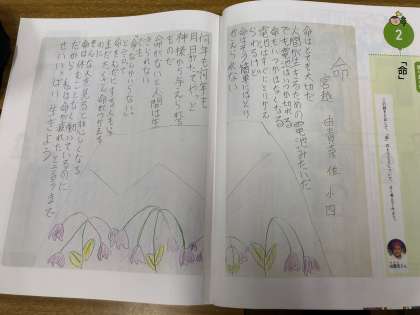 命
宮越 由貴奈 小四
命はとても大切だ
人間が生きるための電池みたいだ
でも電池はいつか切れる
命もいつかはなくなる
電池はすぐにとりかえられるけど
命はそう簡単にはとりかえられない
何年も何年も
月日がたってやっと
神様から与えられるものだ
命がないと人間は生きられない
でも
「命なんかいらない。」
と言って
命をむだにする人もいる
まだたくさん命がつかえるのに
そんな人を見ると悲しくなる
命は休むことなく働いているのに
だから 私は命が疲れたと言うまで
せいいっぱい生きよう
2
「命」